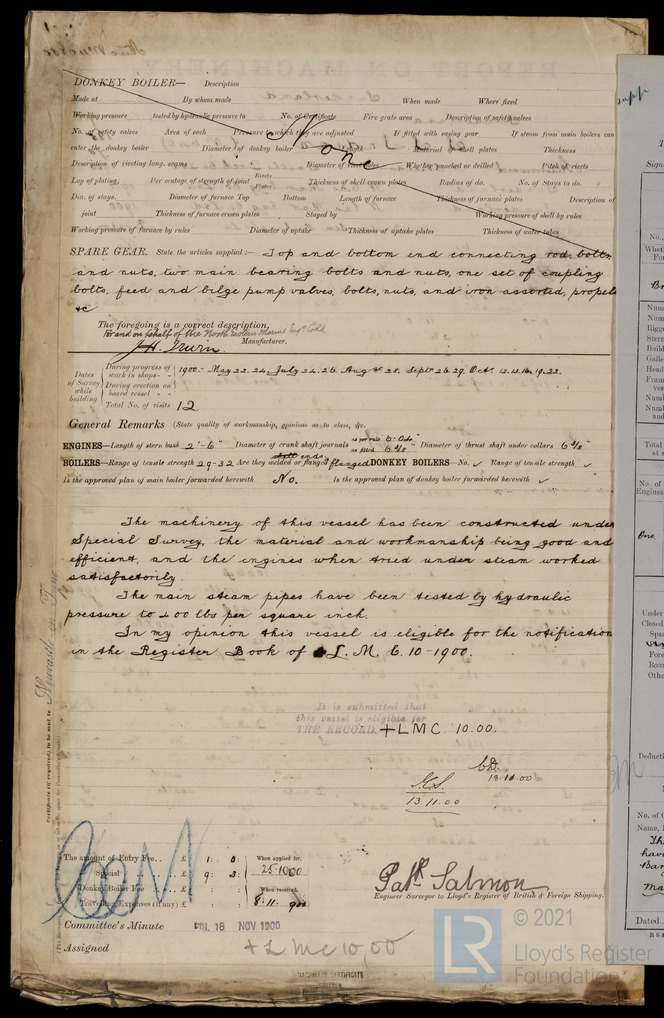 DONKEY BOILER— Description
Made at By whom made When made Where fixed
Working pressure tested by hydraulic pressure to No. of Certificate Fire grate area Description of safety valves
No. of safety valves Area of each Pressure to which they are adjusted If fitted with easing gear If steam from main boilers can
enter the donkey boiler Diameter of donkey boiler Length Material of shell plates Thickness
None
Description of riveting long. seams Diameter of rivet holes Whether punched or drilled Pitch of rivets
Lap of plating, Per centage of strength of joint Rivets Plates Thickness of shell crown plates Radius of do. No. of Stays to do.
Dia. of stays. Diameter of furnace Top Bottom Length of furnace Thickness of furnace plates Description of
joint Thickness of furnace crown plates Stayed by Working pressure of shell by rules
Working pressure of furnace by rules Diameter of uptake Thickness of uptake plates Thickness of water tubes
SPARE GEAR. State the articles supplied:— Top and bottom end connecting rod bolts
and nuts, two main bearing bolts and nuts, one set of coupling
bolts, feed and bilge pump valves, bolts, nuts, and iron assorted, propell
&c
The foregoing is a correct description,
for and on behalf of the North Eastern Marine Eng. Co Ld
J. H. Irwin Manufacturer.
Dates of Survey while building
During progress of work in shops- - 1900:- May 22. 24. July 24. 26. Aug 4. 28. Sept 26. 29. Oct. 12. 13. 16. 19. 22.
During erection on board vessel - -
Total No. of visits 12
General Remarks (State quality of workmanship, opinions as to class, &c.
ENGINES—Length of stern bush 2'-6" Diameter of crank shaft journals as per rule 6.04" as fitted 6 4/8" Diameter of thrust shaft under collars 6 4/8"
BOILERS—Range of tensile strength 29-32 Are they welded or flanged flanged DONKEY BOILERS—No. ✓ Range of tensile strength ✓
Is the approved plan of main boiler forwarded herewith No. Is the approved plan of donkey boiler forwarded herewith ✓
The machinery of this vessel has been constructed under
Special Survey, the material and workmanship being good and
efficient, and the engines when tried under steam worked
satisfactorily.
The main steam pipes have been tested by hydraulic
pressure to 400 lbs per square inch.
In my opinion this vessel is eligible for the notification
in the Register Book of L. M. C. 10-1900.
It is submitted that
this vessel is eligible for
THE RECORD. +LMC 10.00.
13.11.00
13.11.00
Certificate (if required) to be sent to Newcastle on Tyne
The amount of Entry Fee. . £ 1 : 0 : When applied for,
Special . . . £ 9 : 3 : 25.10.00
Donkey Boiler Fee . . . £ : : When received,
Travelling Expenses (if any) £ : : 8.11.900
Patk Salmon
Engineer Surveyor to Lloyd's Register of British & Foreign Shipping.
Committee's Minute FRI. 16 NOV 1900
Assigned + LMC 10,00
MACHINERY CERTIFICATE
© 2021
LR
Lloyd's Register
Foundation